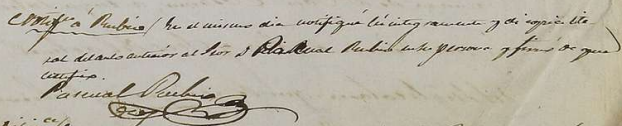 Notifn á Rubio / En el mismo dia notifiqué integramente y di copia lite-
ral del auto anterior al Sor D Pascual Rubio en su persona y firmó de que
certifico.
Pascual Rubio